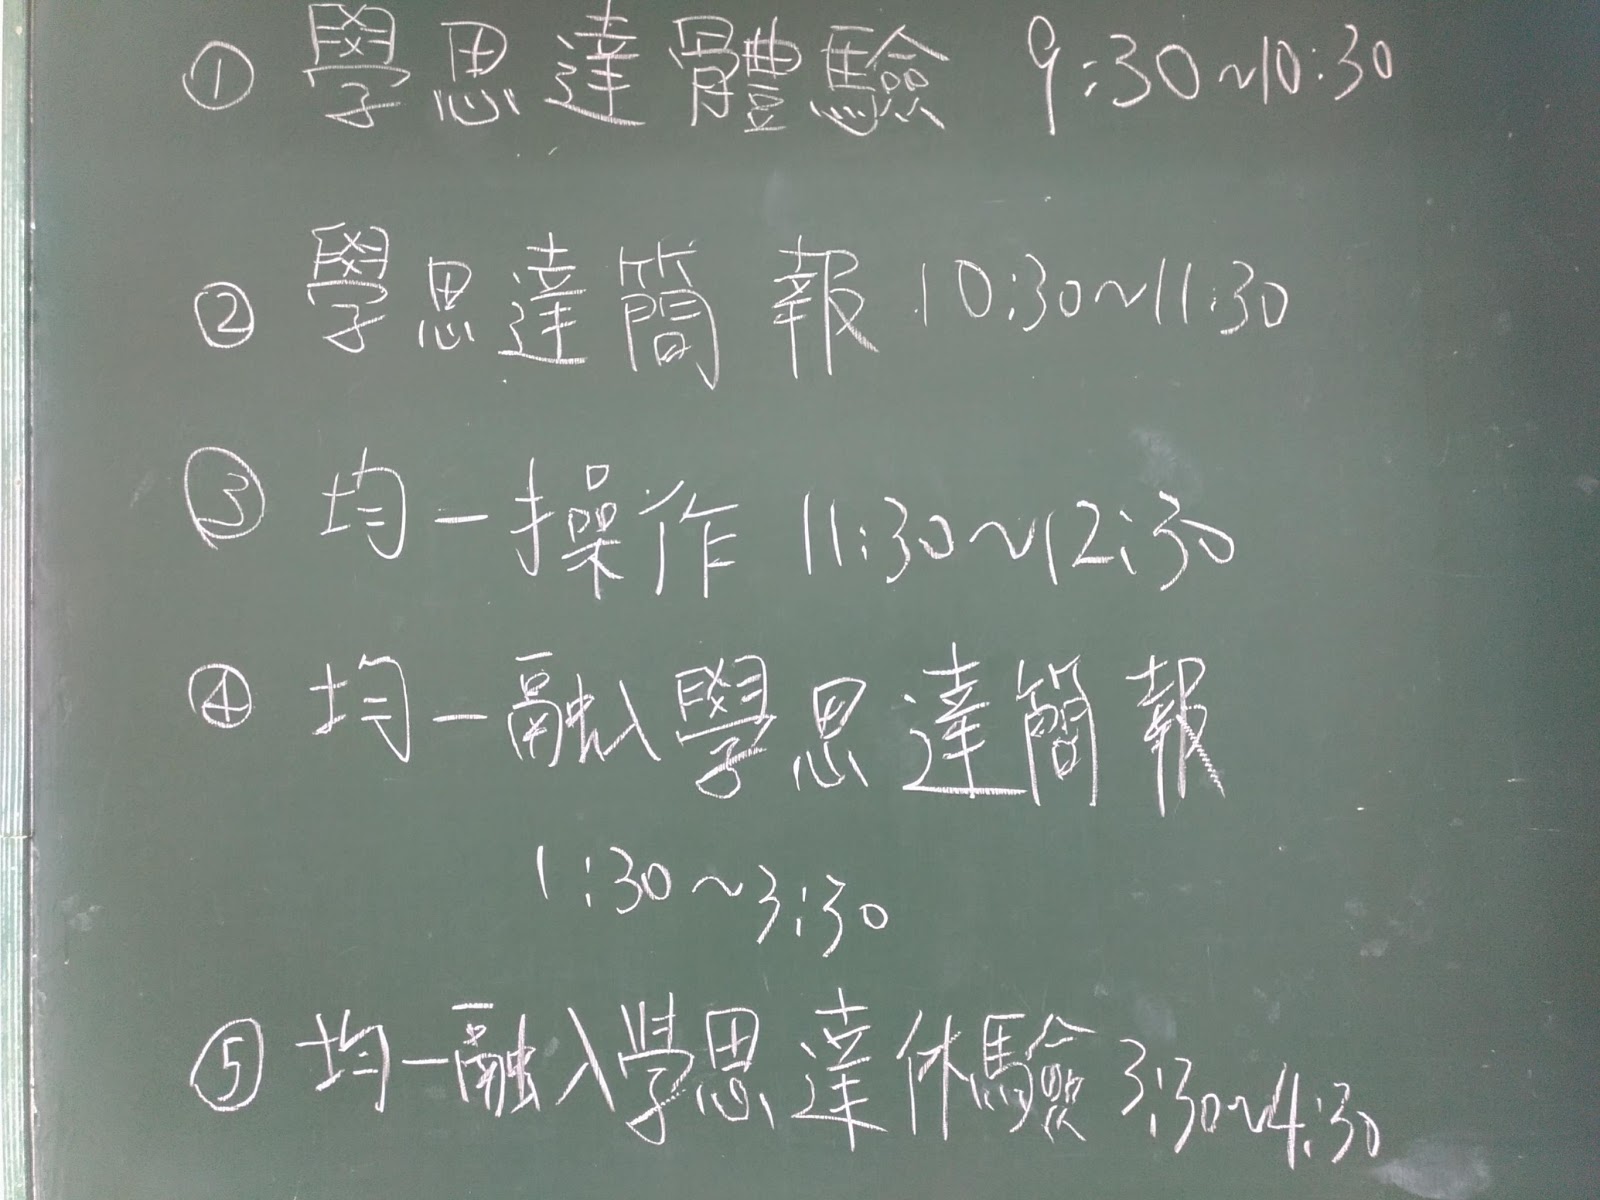 ① 學思達體驗 9:30~10:30
② 學思達簡報 10:30~11:30
③ 均一操作 11:30~12:30
④ 均一融入學思達簡報
1:30~3:30
⑤ 均一融入學思達体驗 3:30~4:30